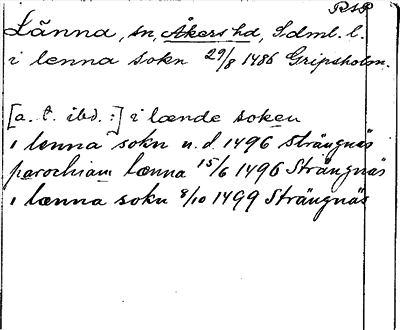 RSR
Länna, sn, Åkers hd, Sdml. l.
i lenna sokn 29/8 1486 Gripsholm.
[a. t. ibd.:] i lænde soken
i lenna sokn u. d. 1496 Strängnäs
parochiam lænna 15/6 1496 Strängnäs
i lænna sokn 8/10 1499 Strängnäs